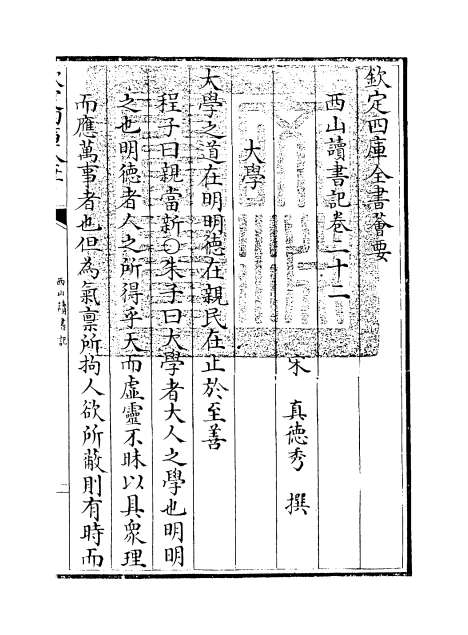 欽定四庫全書薈要
西山讀書記卷二十二
宋 真德秀 撰
大學
大學之道在明明德在親民在止於至善
程子曰親當新○朱子曰大學者大人之學也明明
之也明德者人之所得乎天而虛靈不昧以具衆理
而應萬事者也但為氣禀所拘人欲所蔽則有時而
西山讀書記
一